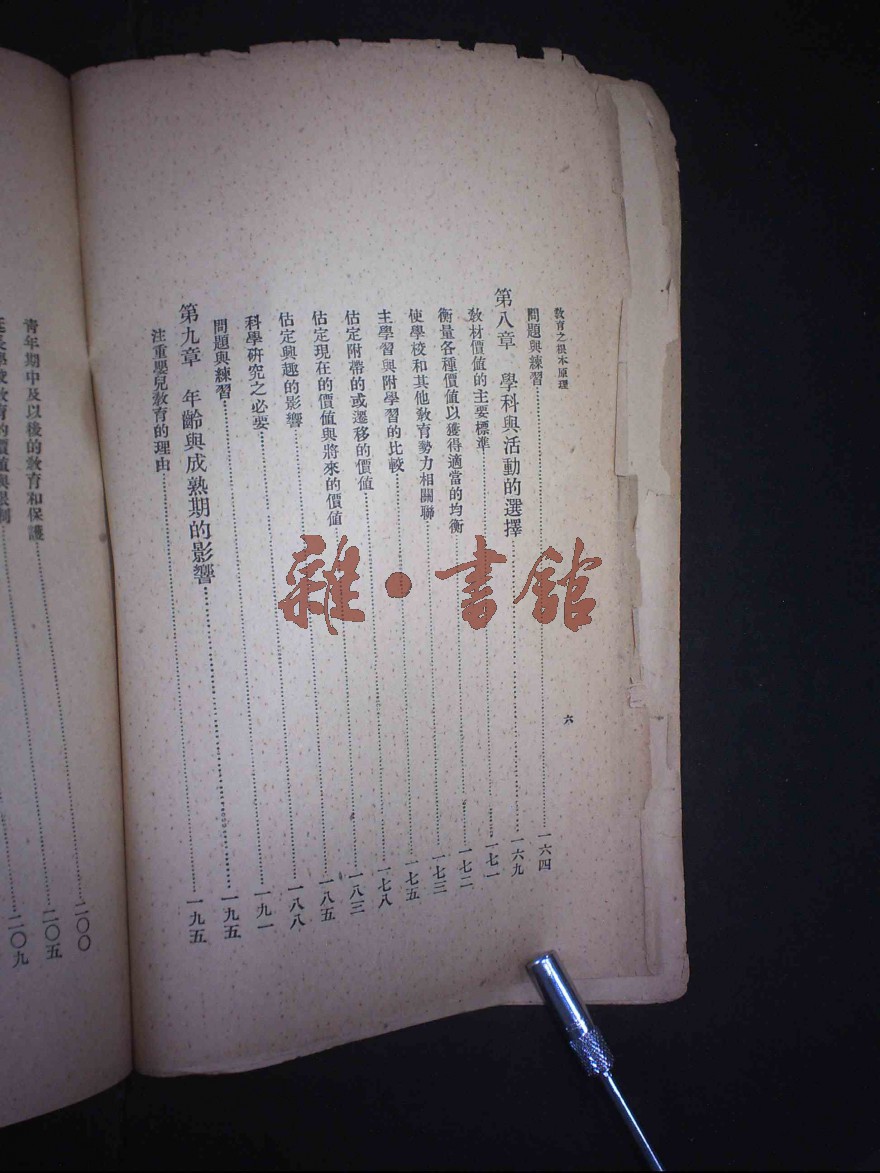 教育之根本原理
六
問題與練習……一六四
第八章　學科與活動的選擇……一六九
教材價值的主要標準……一七一
衡量各種價值以獲得適當的均衡……一七二
使學校和其他教育勢力相關聯……一七三
主學習與附學習的比較……一七五
估定附帶的或遷移的價值……一七八
估定現在的價值與將來的價值……一八三
估定興趣的影響……一八五
科學研究之必要……一八八
問題與練習……一九一
第九章　年齡與成熟期的影響……一九五
注重嬰兒教育的理由……一九五
青年期中及以後的教育和保護……二〇〇
長學校教育的價值與限制……二〇五
二〇九
雜·書館